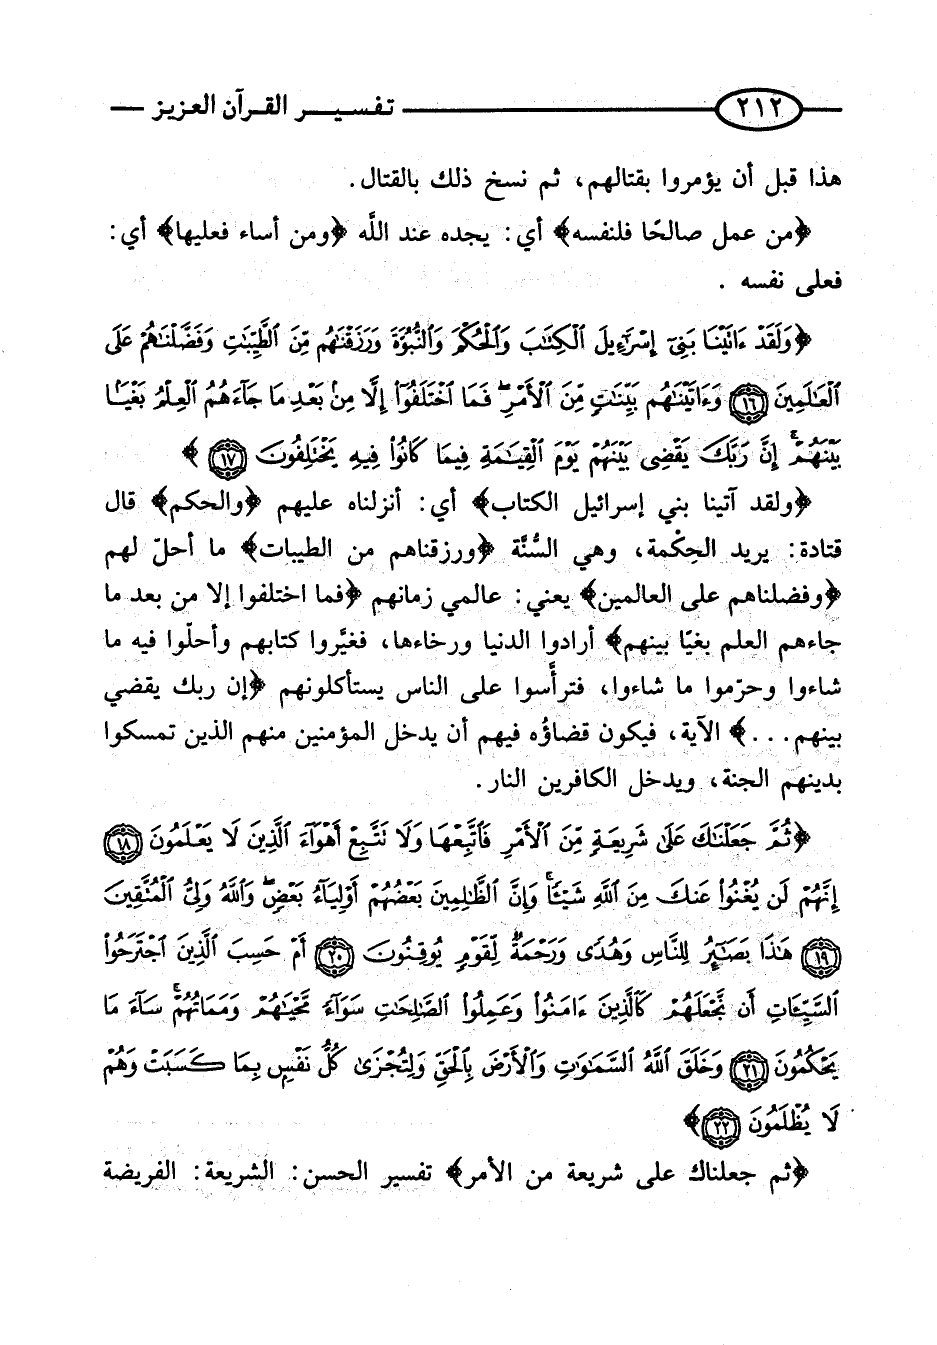 ٢١٢ تفسير القرآن العزيز
هذا قبل أن يؤمروا بقتالهم، ثم نسخ ذلك بالقتال.
﴿من عمل صالحًا فلنفسه﴾ أي: يجده عند اللَّه ﴿ومن أساء فعليها﴾ أي:
فعلى نفسه .
﴿وَلَقَدْ ءَاتَيْنَا بَنِىٓ إِسْرَٰٓءِيلَ ٱلْكِتَٰبَ وَٱلْحُكْمَ وَٱلنُّبُوَّةَ وَرَزَقْنَٰهُم مِّنَ ٱلطَّيِّبَٰتِ وَفَضَّلْنَٰهُمْ عَلَى
ٱلْعَٰلَمِينَ ١٦ وَءَاتَيْنَٰهُم بَيِّنَٰتٍ مِّنَ ٱلْأَمْرِ ۖ فَمَا ٱخْتَلَفُوٓا۟ إِلَّا مِنۢ بَعْدِ مَا جَآءَهُمُ ٱلْعِلْمُ بَغْيًۢا
بَيْنَهُمْ ۚ إِنَّ رَبَّكَ يَقْضِى بَيْنَهُمْ يَوْمَ ٱلْقِيَٰمَةِ فِيمَا كَانُوا۟ فِيهِ يَخْتَلِفُونَ ١٧ ﴾
﴿ولقد آتينا بني إسرائيل الكتاب﴾ أي: أنزلناه عليهم ﴿والحكم﴾ قال
قتادة: يريد الحِكْمة، وهي السُّنَّة ﴿ورزقناهم من الطيبات﴾ ما أحلّ لهم
﴿وفضلناهم على العالمين﴾ يعني: عالمي زمانهم ﴿فما اختلفوا إلا من بعد ما
جاءهم العلم بغيًا بينهم﴾ أرادوا الدنيا ورخاءها، فغيَّروا كتابهم وأحلّوا فيه ما
شاءوا وحرّموا ما شاءوا، فترأَّسوا على الناس يستأكلونهم ﴿إن ربك يقضي
بينهم...﴾ الآية، فيكون قضاؤه فيهم أن يدخل المؤمنين منهم الذين تمسكوا
بدينهم الجنة، ويدخل الكافرين النار.
﴿ثُمَّ جَعَلْنَٰكَ عَلَىٰ شَرِيعَةٍ مِّنَ ٱلْأَمْرِ فَٱتَّبِعْهَا وَلَا نَتَّبِعْ أَهْوَآءَ ٱلَّذِينَ لَا يَعْلَمُونَ ١٨
إِنَّهُمْ لَن يُغْنُوا۟ عَنكَ مِنَ ٱللَّهِ شَيْـًٔا ۚ وَإِنَّ ٱلظَّٰلِمِينَ بَعْضُهُمْ أَوْلِيَآءُ بَعْضٍ ۖ وَٱللَّهُ وَلِىُّ ٱلْمُتَّقِينَ
١٩ هَٰذَا بَصَٰٓئِرُ لِلنَّاسِ وَهُدًى وَرَحْمَةٌ لِّقَوْمٍ يُوقِنُونَ ٢٠ أَمْ حَسِبَ ٱلَّذِينَ ٱجْتَرَحُوا۟
ٱلسَّيِّـَٔاتِ أَن نَّجْعَلَهُمْ كَٱلَّذِينَ ءَامَنُوا۟ وَعَمِلُوا۟ ٱلصَّٰلِحَٰتِ سَوَآءً مَّحْيَاهُمْ وَمَمَاتُهُمْ ۚ سَآءَ مَا
يَحْكُمُونَ ٢١ وَخَلَقَ ٱللَّهُ ٱلسَّمَٰوَٰتِ وَٱلْأَرْضَ بِٱلْحَقِّ وَلِتُجْزَىٰ كُلُّ نَفْسٍۭ بِمَا كَسَبَتْ وَهُمْ
لَا يُظْلَمُونَ ٢٢﴾
﴿ثم جعلناك على شريعة من الأمر﴾ تفسير الحسن: الشريعة: الفريضة